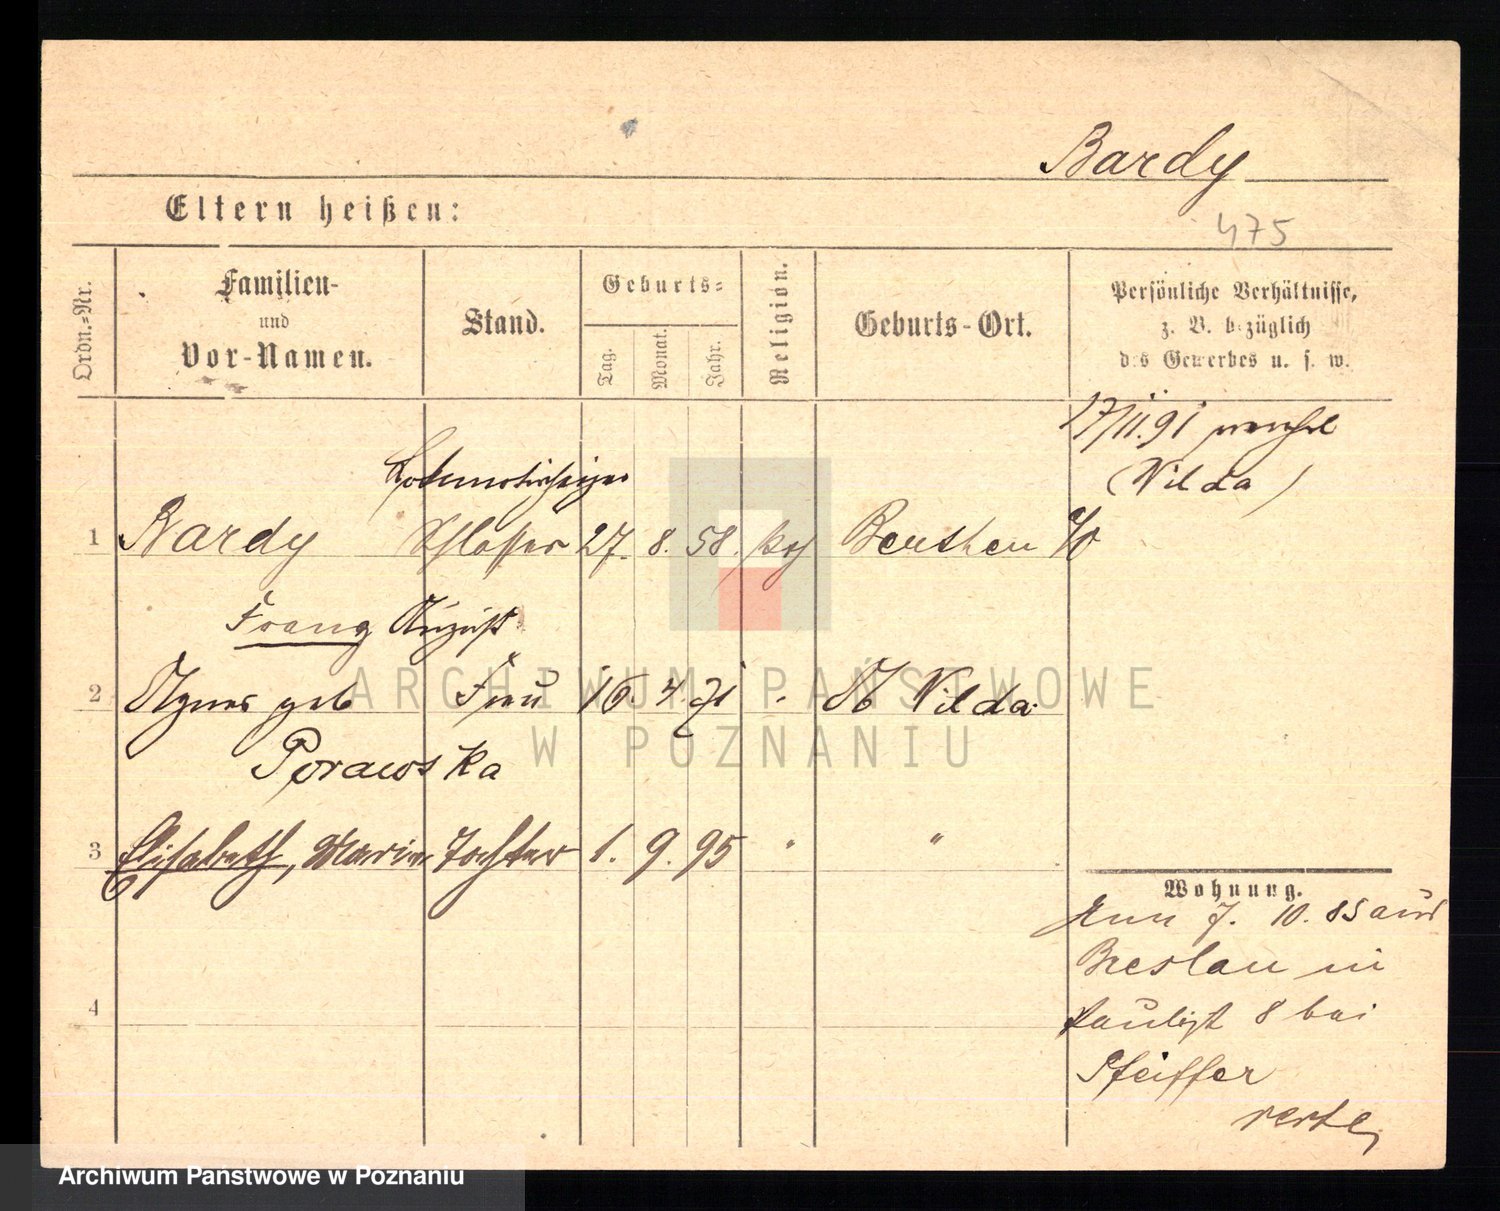 Bardy
Eltern heißen:
475
Ordn.-Nr.
Familien-
und
Vor-Namen.
Stand.
Geburts-
Tag.
Monat.
Jahr.
Religion.
Geburts-Ort.
Persönliche Verhältnisse,
z. B. bezüglich
des Gewerbes u. s. w.
17/11.91
(Wilda)
Lokomotivheizer
1 Bardy Schlosser 27. 8. 58. kath Beuthen a/O
Franz August
2 Agnes geb Frau 16. 4. 71 " Wilda
Porawska
3 Elisabeth, Marie Tochter 1. 9. 95 " "
Wohnung.
7. 10. 85 aus
Breslau in
8 bei
4
Pfeiffer
verte
ARCHIWUM PAŃSTWOWE
W POZNANIU
Archiwum Państwowe w Poznaniu